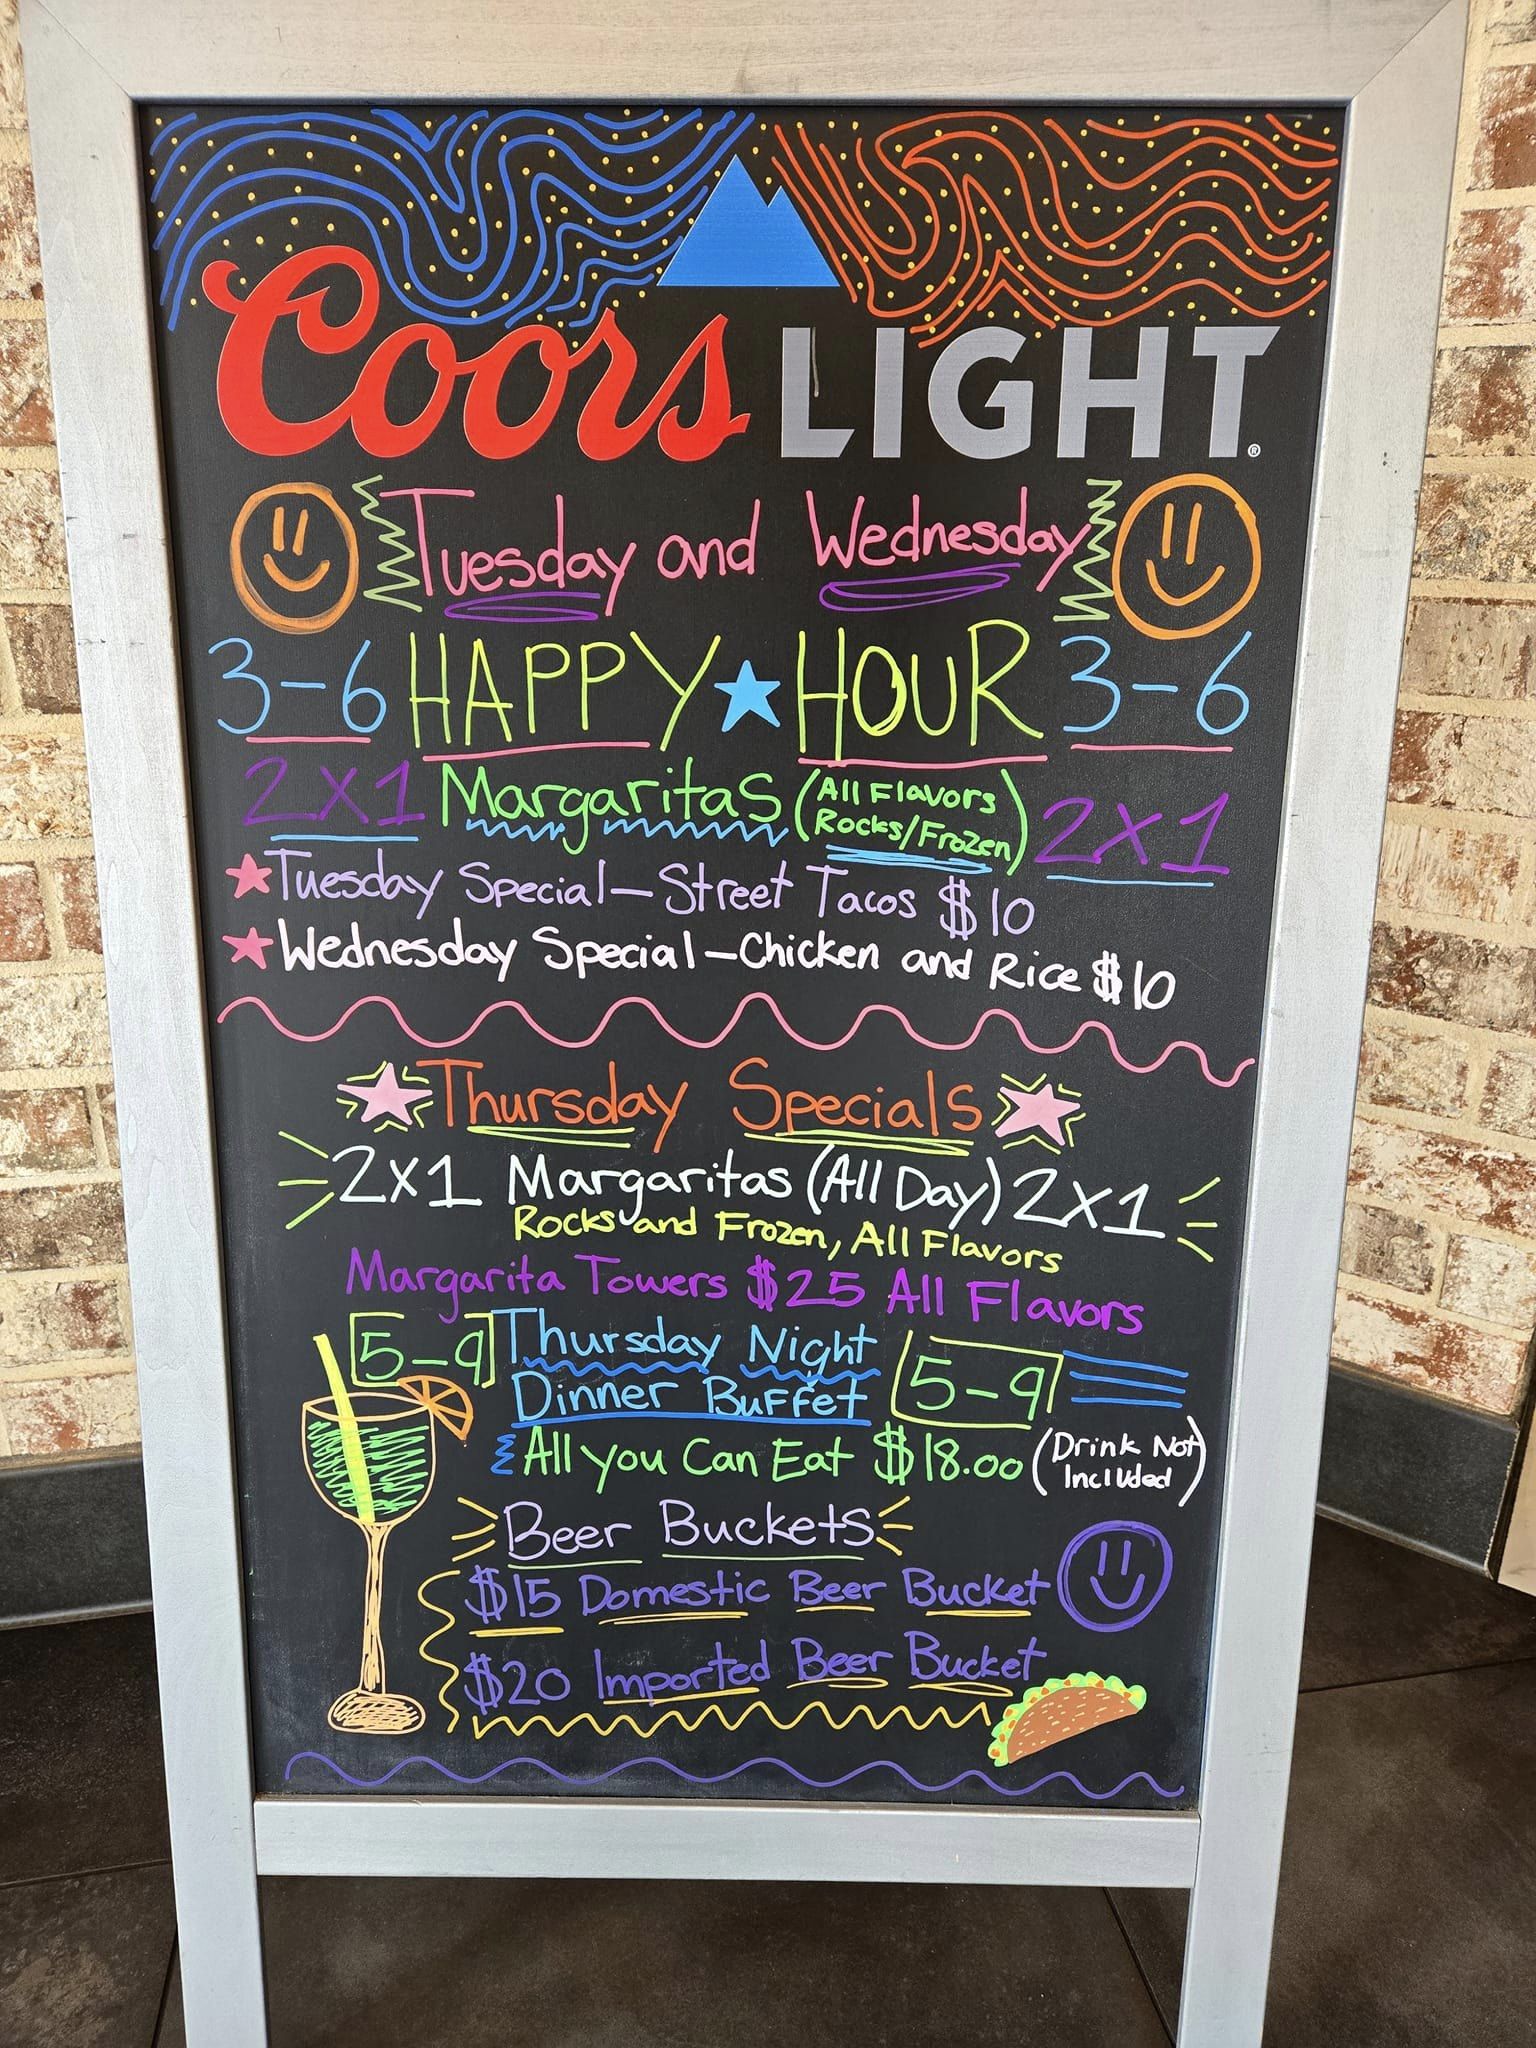 Coors LIGHT®
Tuesday and Wednesday
3-6 HAPPY HOUR 3-6
2x1 Margaritas (All Flavors Rocks/Frozen) 2x1
Tuesday Special-Street Tacos $10
Wednesday Special-Chicken and Rice $10
Thursday Specials
2x1 Margaritas (All Day) 2x1
Rocks and Frozen, All Flavors
Margarita Towers $25 All Flavors
5-9 Thursday Night 5-9
Dinner Buffet
All you Can Eat $18.00 (Drink Not Included)
Beer Buckets
$15 Domestic Beer Bucket
$20 Imported Beer Bucket